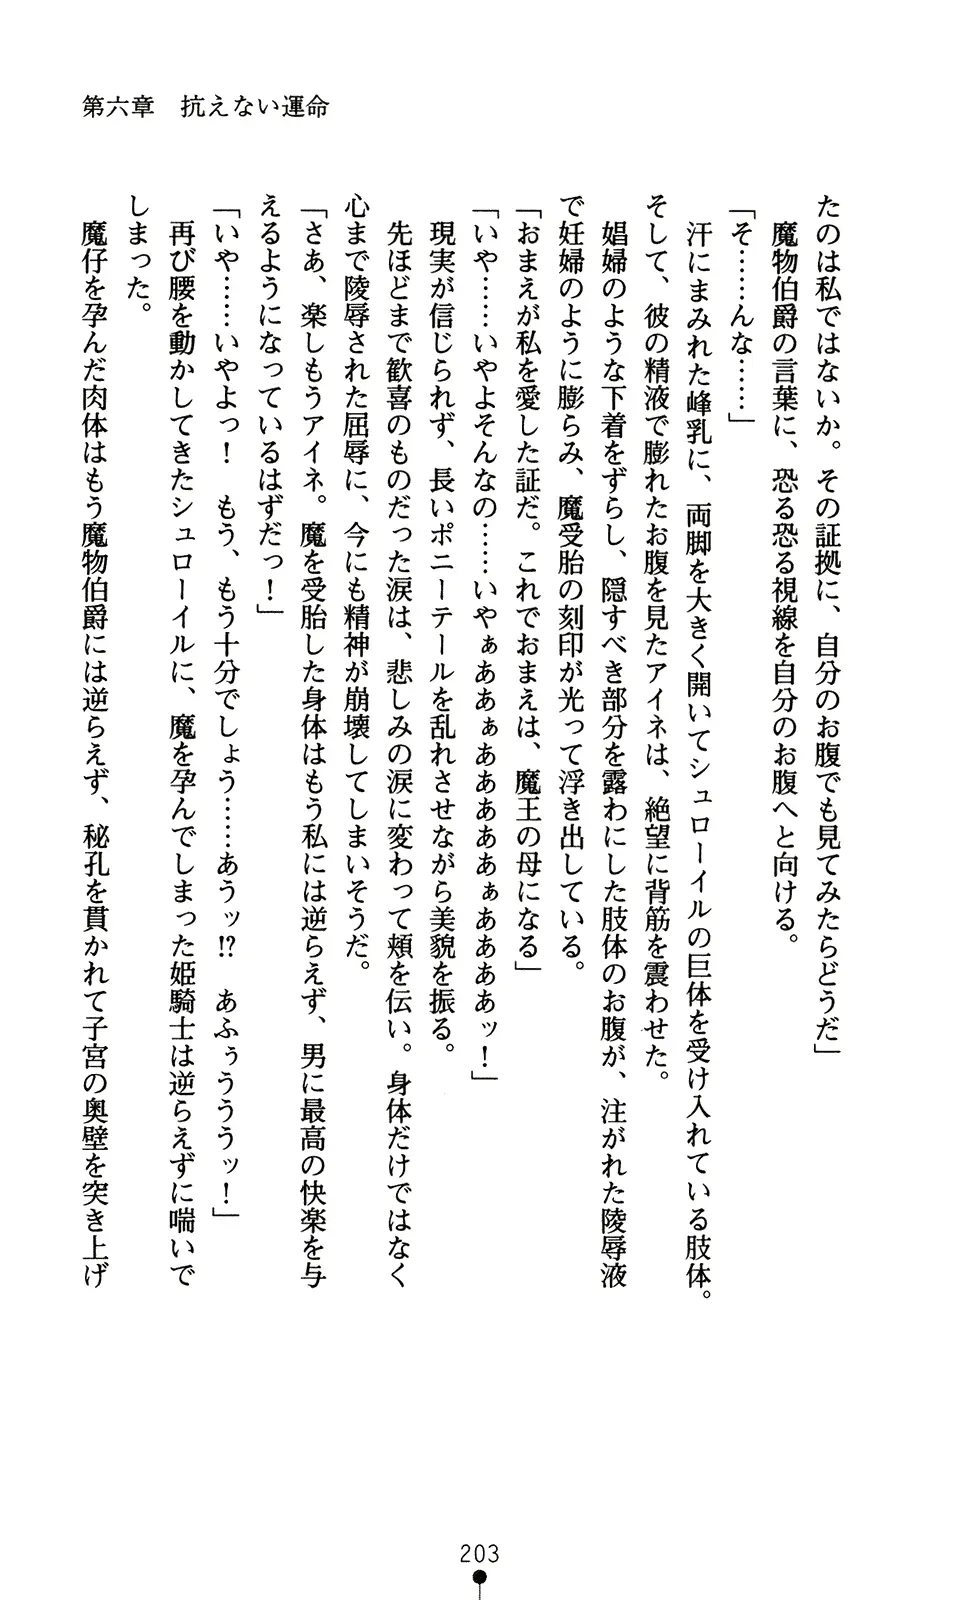 第六章　抗えない運命
たのは私ではないか。その証拠に、自分のお腹でも見てみたらどうだ」
魔物伯爵の言葉に、恐る恐る視線を自分のお腹へと向ける。
「そ……んな……」
汗にまみれた峰乳に、両脚を大きく開いてシュローイルの巨体を受け入れている肢体。
そして、彼の精液で膨れたお腹を見たアイネは、絶望に背筋を震わせた。
娼婦のような下着をずらし、隠すべき部分を露わにした肢体のお腹が、注がれた陵辱液
で妊婦のように膨らみ、魔受胎の刻印が光って浮き出している。
「おまえが私を愛した証だ。これでおまえは、魔王の母になる」
「いや……いやよそんなの……いやぁああぁああああああぁああああッ！」
現実が信じられず、長いポニーテールを乱れさせながら美貌を振る。
先ほどまで歓喜のものだった涙は、悲しみの涙に変わって頬を伝い。身体だけではなく
心まで陵辱された屈辱に、今にも精神が崩壊してしまいそうだ。
「さあ、楽しもうアイネ。魔を受胎した身体はもう私には逆らえず、男に最高の快楽を与
えるようになっているはずだっ！」
「いや……いやよっ！　もう、もう十分でしょう……あうッ!?　あふぅううッ！」
再び腰を動かしてきたシュローイルに、魔を孕んでしまった姫騎士は逆らえずに喘いで
しまった。
魔仔を孕んだ肉体はもう魔物伯爵には逆らえず、秘孔を貫かれて子宮の奥壁を突き上げ
203